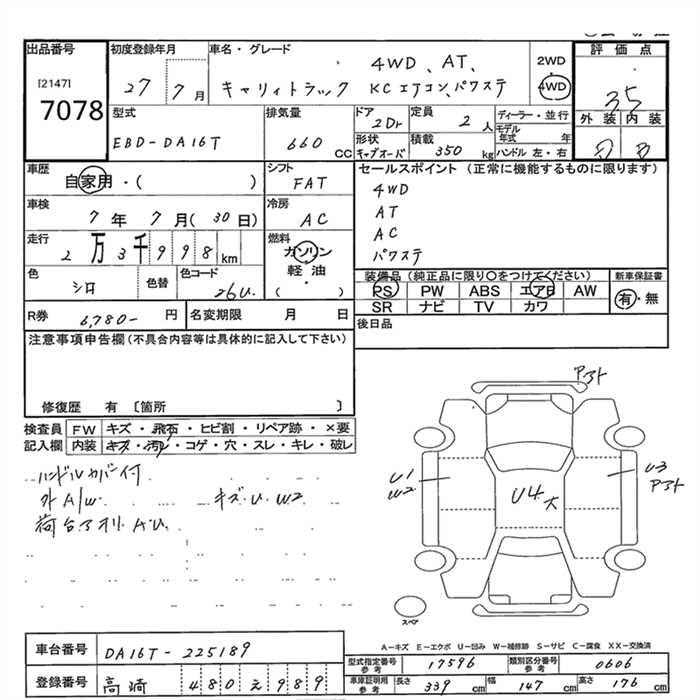 出品番号 初度登録年月 車名・グレード 4WD、AT、 2WD 評価点
[2147] 27 7月 キャリィトラック KCエアコン、パワステ 4WD 35
7078 型式 排気量 ドア 2Dr 定員 2人 ディーラー・並行 外装 内装
EBD-DA16T 660 CC 形状 キャブオーバ 積載 350 kg モデル年式 年 ハンドル 左・右 D B
車歴 自家用・( ) シフト FAT セールスポイント (正常に機能するものに限ります)
車検 7年7月(30日) 冷房 AC 4WD
AT
AC
走行 2万3千998km 燃料 ガソリン・軽油 ( ) パワステ
色 シロ 色替 色コード 26U 装備品(純正品に限り○をつけてください) 新車保証書
PS PW ABS エアB AW 有・無
SR ナビ TV カワ
R券 6,780- 円 名変期限 月 日 後日品
注意事項申告欄(不具合内容等は具体的に記入して下さい)
修復歴 有 〔箇所 〕
検査員 FW キズ・飛石・ヒビ割・リペア跡・×要
記入欄 内装 キズ・汚レ・コゲ・穴・スレ・キレ・破レ
ハンドルカバー付
外A/W キズ.U.W2
荷台アオリ A.U.
アオト
U1
W2
U4大
U3
アオト
スペア
A−キズ E−エクボ U−凹み W−補修跡 S−サビ C−腐食 XX−交換済
車台番号 DA16T-225189 型式指定番号 参考 17596 類別区分番号 参考 0606
登録番号 高崎 480え989 車庫証明用 参考 長さ 339 cm 幅 147 cm 高さ 176 cm